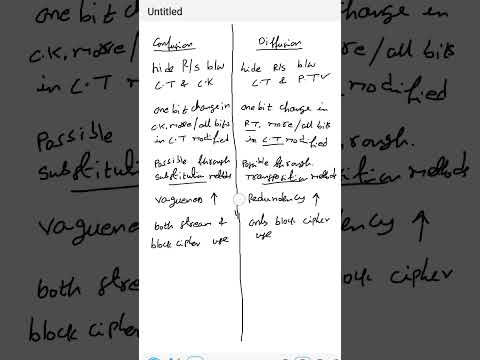 Untitled
Confusion
hide R/s b/w
C.T & C.K
one bit change in
C.K, more/all bits
in C.T modified
Possible through
substitution methods
Vagueness ↑
both stream &
block cipher use
Diffusion
hide R/s b/w
C.T & P.T
one bit change in
P.T, more/all bits
in C.T modified
Possible through
transposition methods
Redundency ↑
only block cipher
use
one bit
in
C.K, more
in C.T
Possible
substitution
both stream
block ciph
change in
/all bits
modified
rough
ition methods
↑
block cipher